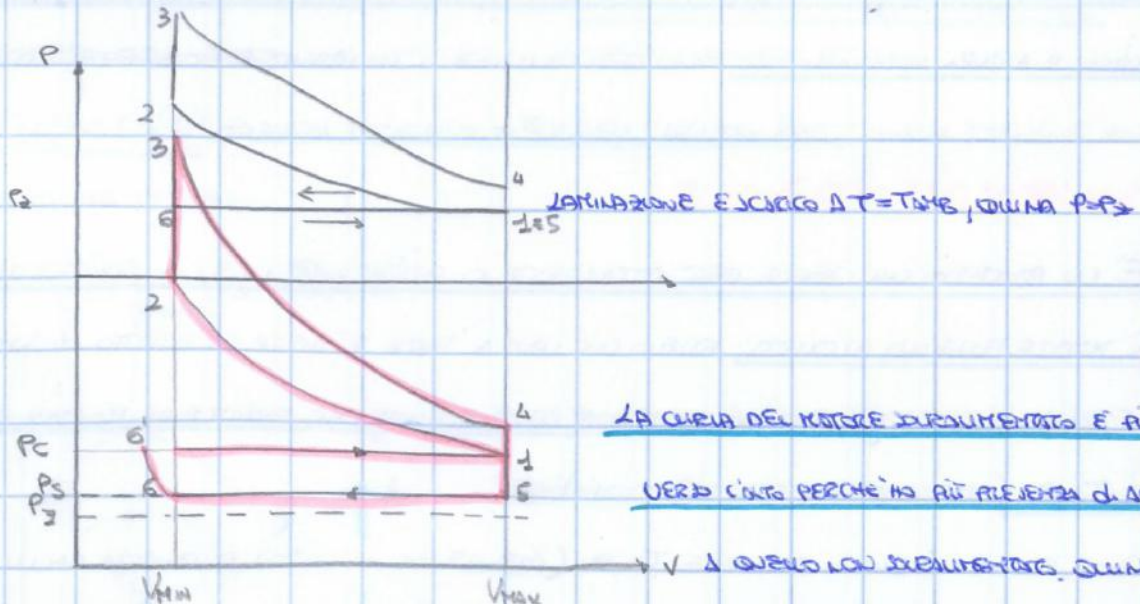 3
P
2
3
4
P2
6
LAMINAZIONE E SCARICO A T=TAMB, QUINDI P=P2
1≡5
2
4
LA CURVA DEL MOTORE SOVRALIMENTATO È
PC
6'
1
PS
6
5
VERSO L'ALTO PERCHÉ HO PIÙ PRESENZA di
P2
V
A QUELLO NON SOVRALIMENTATO.
VMIN
VMAX